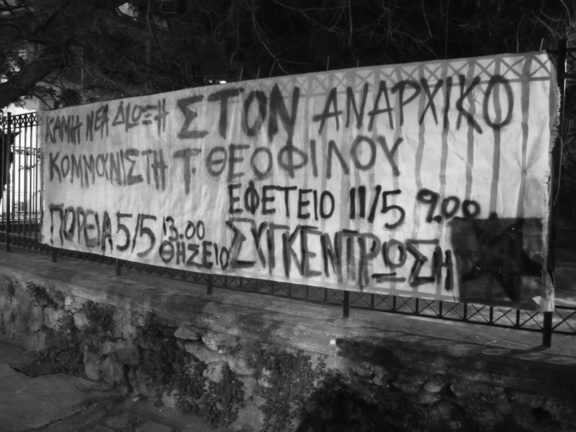 ΚΑΜΙΑ ΝΕΑ ΔΙΩΞΗ ΣΤΟΝ ΑΝΑΡΧΙΚΟ
ΚΟΜΜΟΥΝΙΣΤΗ Τ. ΘΕΟΦΙΛΟΥ
ΕΦΕΤΕΙΟ 11/5 9.00
ΠΟΡΕΙΑ 5/5 13.00 ΘΗΣΕΙΟ
ΣΥΓΚΕΝΤΡΩΣΗ